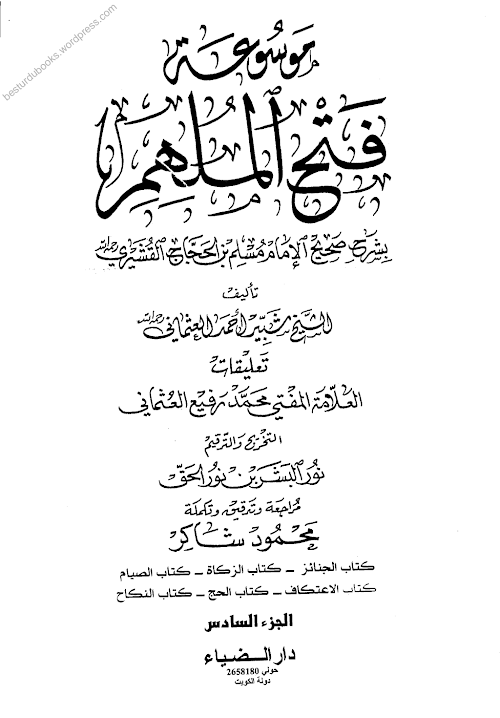 besturdubooks.wordpress.com
موسوعة
فتح الملهم
بشرح صحيح الإمام مسلم بن الحجاج القشيري رحمه الله
تأليف
الشيخ شبير أحمد العثماني رحمه الله
تعليقات
العلامة المفتي محمد رفيع العثماني
التخريج والترقيم
نور البشر بن نور الحق
مراجعة وتدقيق وتكملة
محمود شاكر
كتاب الجنائز – كتاب الزكاة – كتاب الصيام
كتاب الاعتكاف – كتاب الحج – كتاب النكاح
الجزء السادس
دار الضياء
حولي 2658180
دولة الكويت